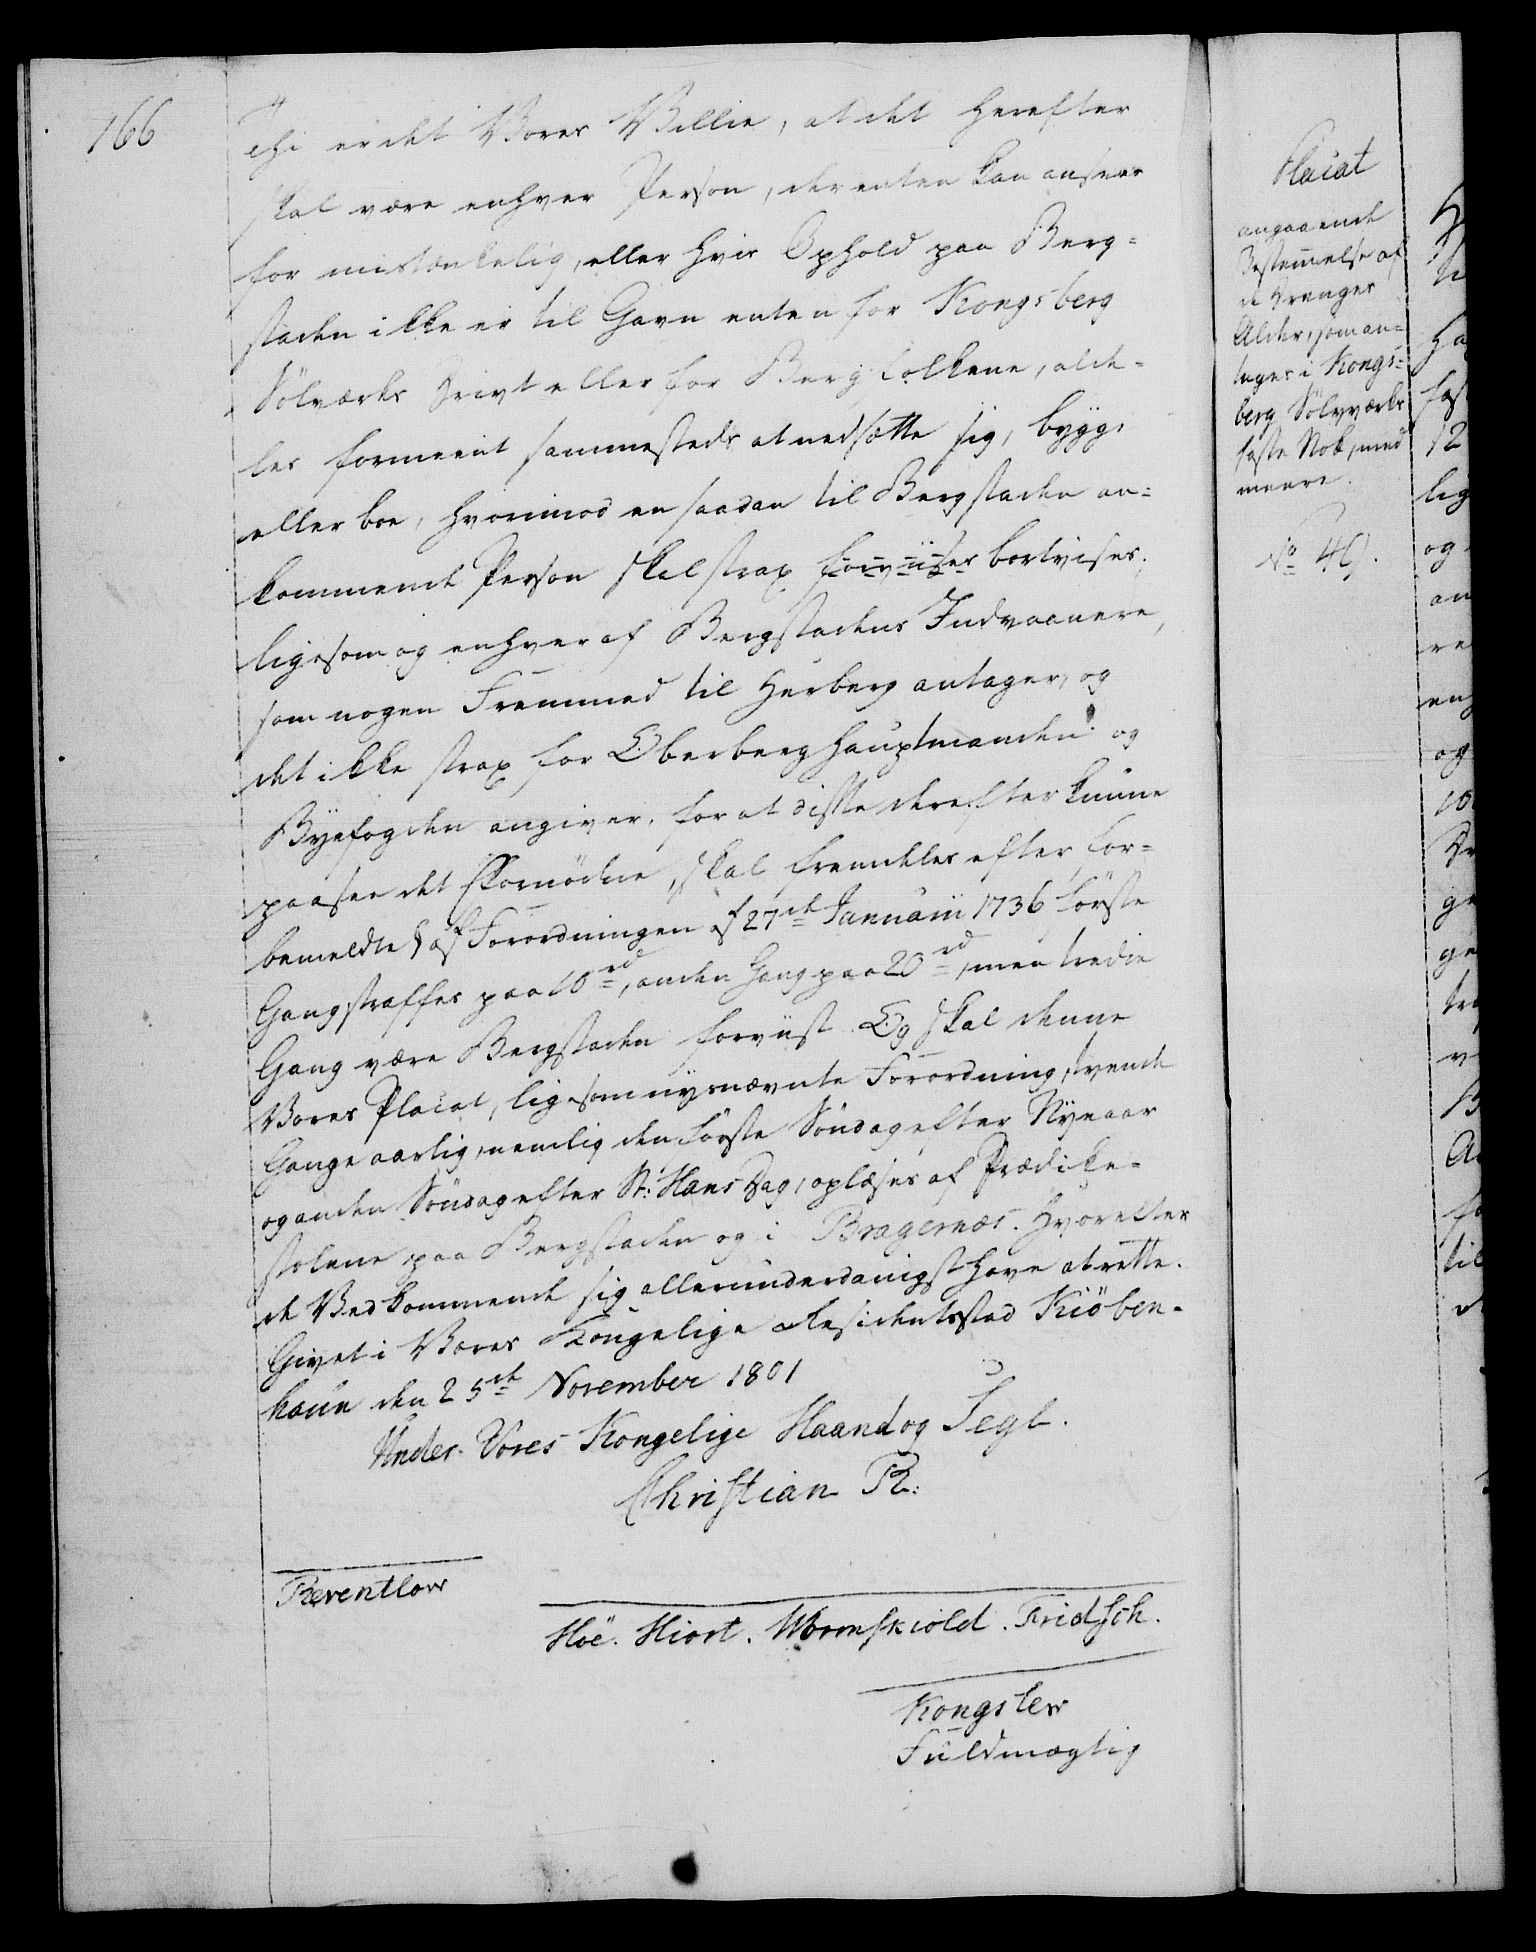 166
Thi er det Vores Villie, at det herefter
skal være enhver Person, der enten kan ansees
for mistænkelig, eller hvis Ophold paa Berg=
staden ikke er til Gavn enten for Kongsberg
Sölværks Drivt eller for Bergfolkene, alde=
les formeent sammesteds at nedsætte sig, bygge
eller boe, hvorimod en saadan til Bergstaden an=
kommende Person skal strax forviises bortvises;
ligesom og enhver af Bergstadens Indvaanere,
som nogen Fremmed til Herberg antager, og
det ikke strax for Oberberghauptmanden og
Byefogden angiver, for at disse derefter kunne
paasee det fornödne, skal fremdeles efter for=
bemeldte § af Forordningen af 27de Januarii 1736 förste
Gang straffes paa 10 rd, anden Gang paa 20 rd, men tredie
Gang være Bergstaden forviist. Og skal denne
Vores Placat, ligesom nysnævnte Forordning, tvende
Gange aarlig, nemlig den förste Söndag efter Nyeaar
og anden Söndag efter St: Hans Dag, oplæses af Prædike=
stolene paa Bergstaden og i Bragernæs. Hvorefter
de Vedkommende sig allerunderdanigst have at rette.
Givet i Vores Kongelige Residentsstad Kiöben-
havn den 25de November 1801
Under Vores Kongelige Haand og Segl.
Christian R.
Reventlow
Höe. Hiort. Wormskiold. Fridsch.
Kongslew
Fuldmægtig
Placat
angaaende
Bestemmelse af
de Drenges
Alder, som an=
tages i Kongs=
berg Sölvværks
faste Stok, med
meere.
No 49.